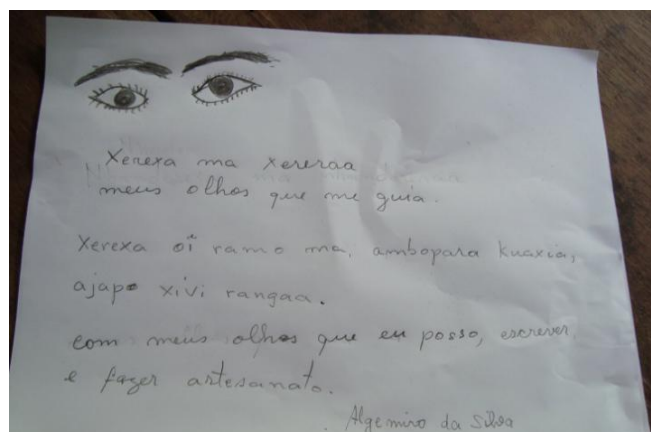 Xerexa ma xereraa
meus olhos que me guia.
Xerexa oĩ ramo ma, ambopara kuaxia,
ajapo xivi rangaa.
com meus olhos que eu posso, escrever
e fazer artesanato.
Algemiro da Silva